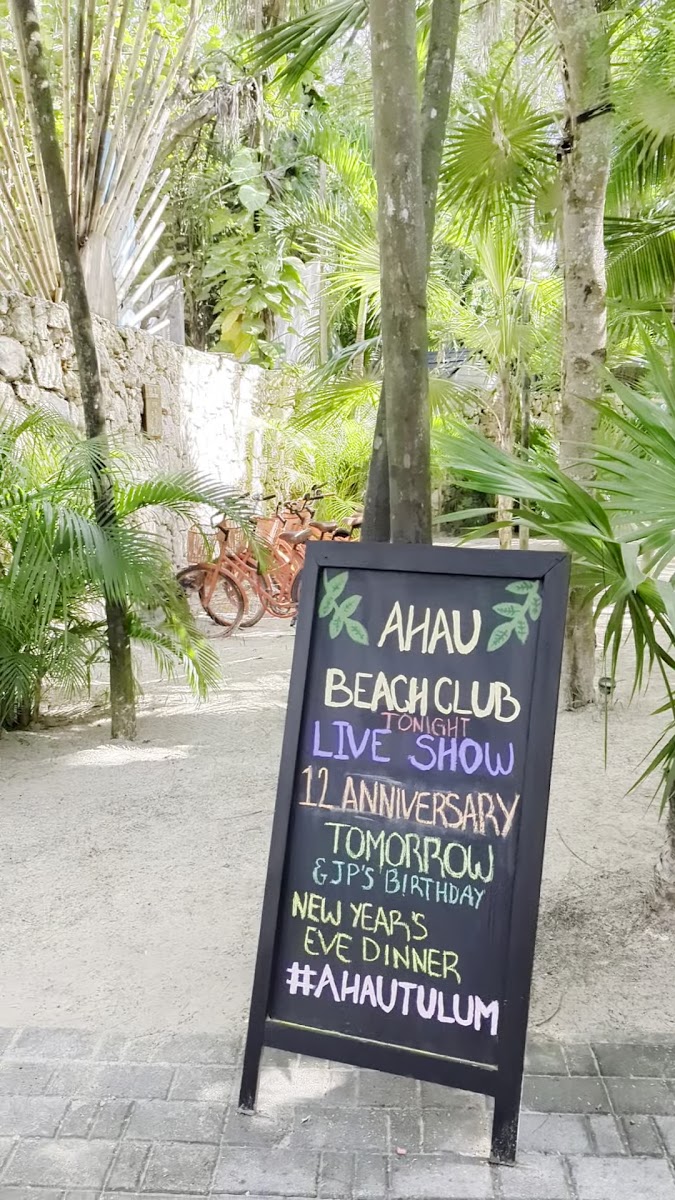 AHAU
BEACH CLUB
TONIGHT
LIVE SHOW
12 ANNIVERSARY
TOMORROW
& JP'S BIRTHDAY
NEW YEAR'S
EVE DINNER
#AHAUTULUM